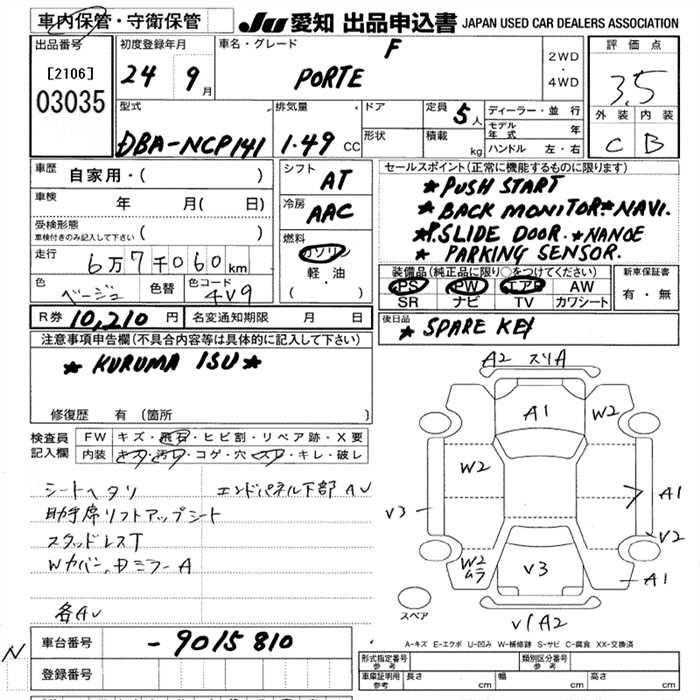 車内保管・守衛保管
JU 愛知 出品申込書 JAPAN USED CAR DEALERS ASSOCIATION
出品番号 [2106] 03035
初度登録年月 24 9月
車名・グレード F PORTE
2WD・4WD
評価点 3.5
外装 C 内装 B
型式 DBA-NCP141
排気量 1.49 CC
ドア
形状
定員 5人
積載 kg
ディーラー・並行
モデル年式 年
ハンドル 左・右
車歴 自家用・( )
車検 年 月( 日)
受検形態
車検付きのみ記入して下さい ( )
走行 6万7千060km
色 ベージュ 色替 色コード 4V9
シフト AT
冷房 AAC
燃料 ガソリン
軽・油
( ・ )
セールスポイント(正常に機能するものに限ります)
★PUSH START
★BACK MONITOR.★NAVI.
★P.SLIDE DOOR.★NANOE
★PARKING SENSOR.
装備品(純正品に限り○をつけてください)
PS PW エアB AW
SR ナビ TV カワシート
新車保証書
有・無
R券 10,210円 名変通知期限 月 日
後日品 ★SPARE KEY
注意事項申告欄(不具合内容等は具体的に記入して下さい)
★KURUMA ISU★
修復歴 有 (箇所 )
検査員記入欄
FW キズ・飛石・ヒビ割・リペア跡・X要
内装 キズ・汚レ・コゲ・穴・スレ・キレ・破レ
シートヘタリ エンドパネル下部AU
助手席リフトアップシート
スタッドレスT
Wカバー,Dミラー A
各AU
A2 スリA
A1 W2
W2
V3 A1
V2
W2 ムラ V3 A1
スペア
V/A2
A-キズ E-エクボ U-凹み W-補修跡 S-サビ C-腐食 XX-交換済
N
車台番号 -9015810
登録番号
形式指定番号 参考
類別区分番号 参考
車庫証明記載用 参考 長さ cm 幅 cm 高さ cm